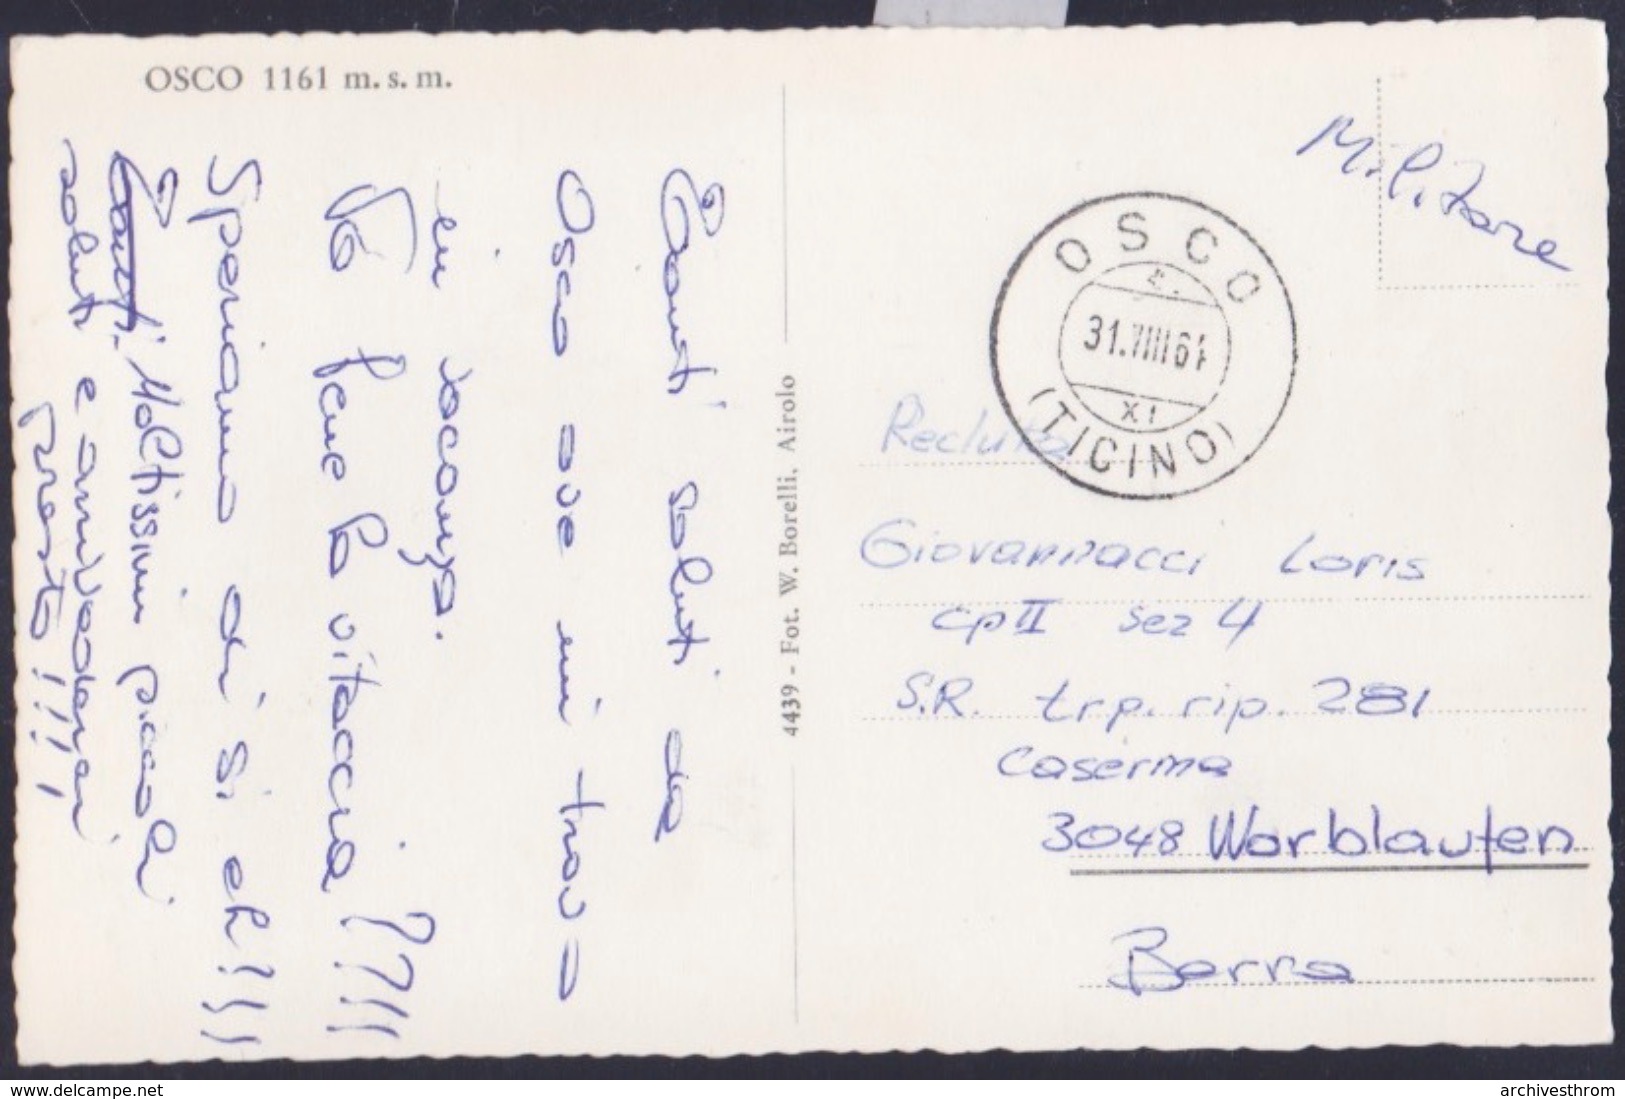 OSCO 1161 m. s. m.
Tanti saluti da
Osco ove mi trovo
in vacanza.
Va bene la vitaccia ??!!
Speriamo di si eh!!!!
Tanti. Moltissimi piccoli
saluti e arrivederci
presto!!!!
4439 - Fot. W. Borelli, Airolo
Militare
OSCO
31.VIII 61
XI
(TICINO)
Recluta
Giovannacci Loris
cp II sez 4
S.R. trp. rip. 281
Caserma
3048 Worblaufen
Berna
www.delcampe.net
archivesthrom